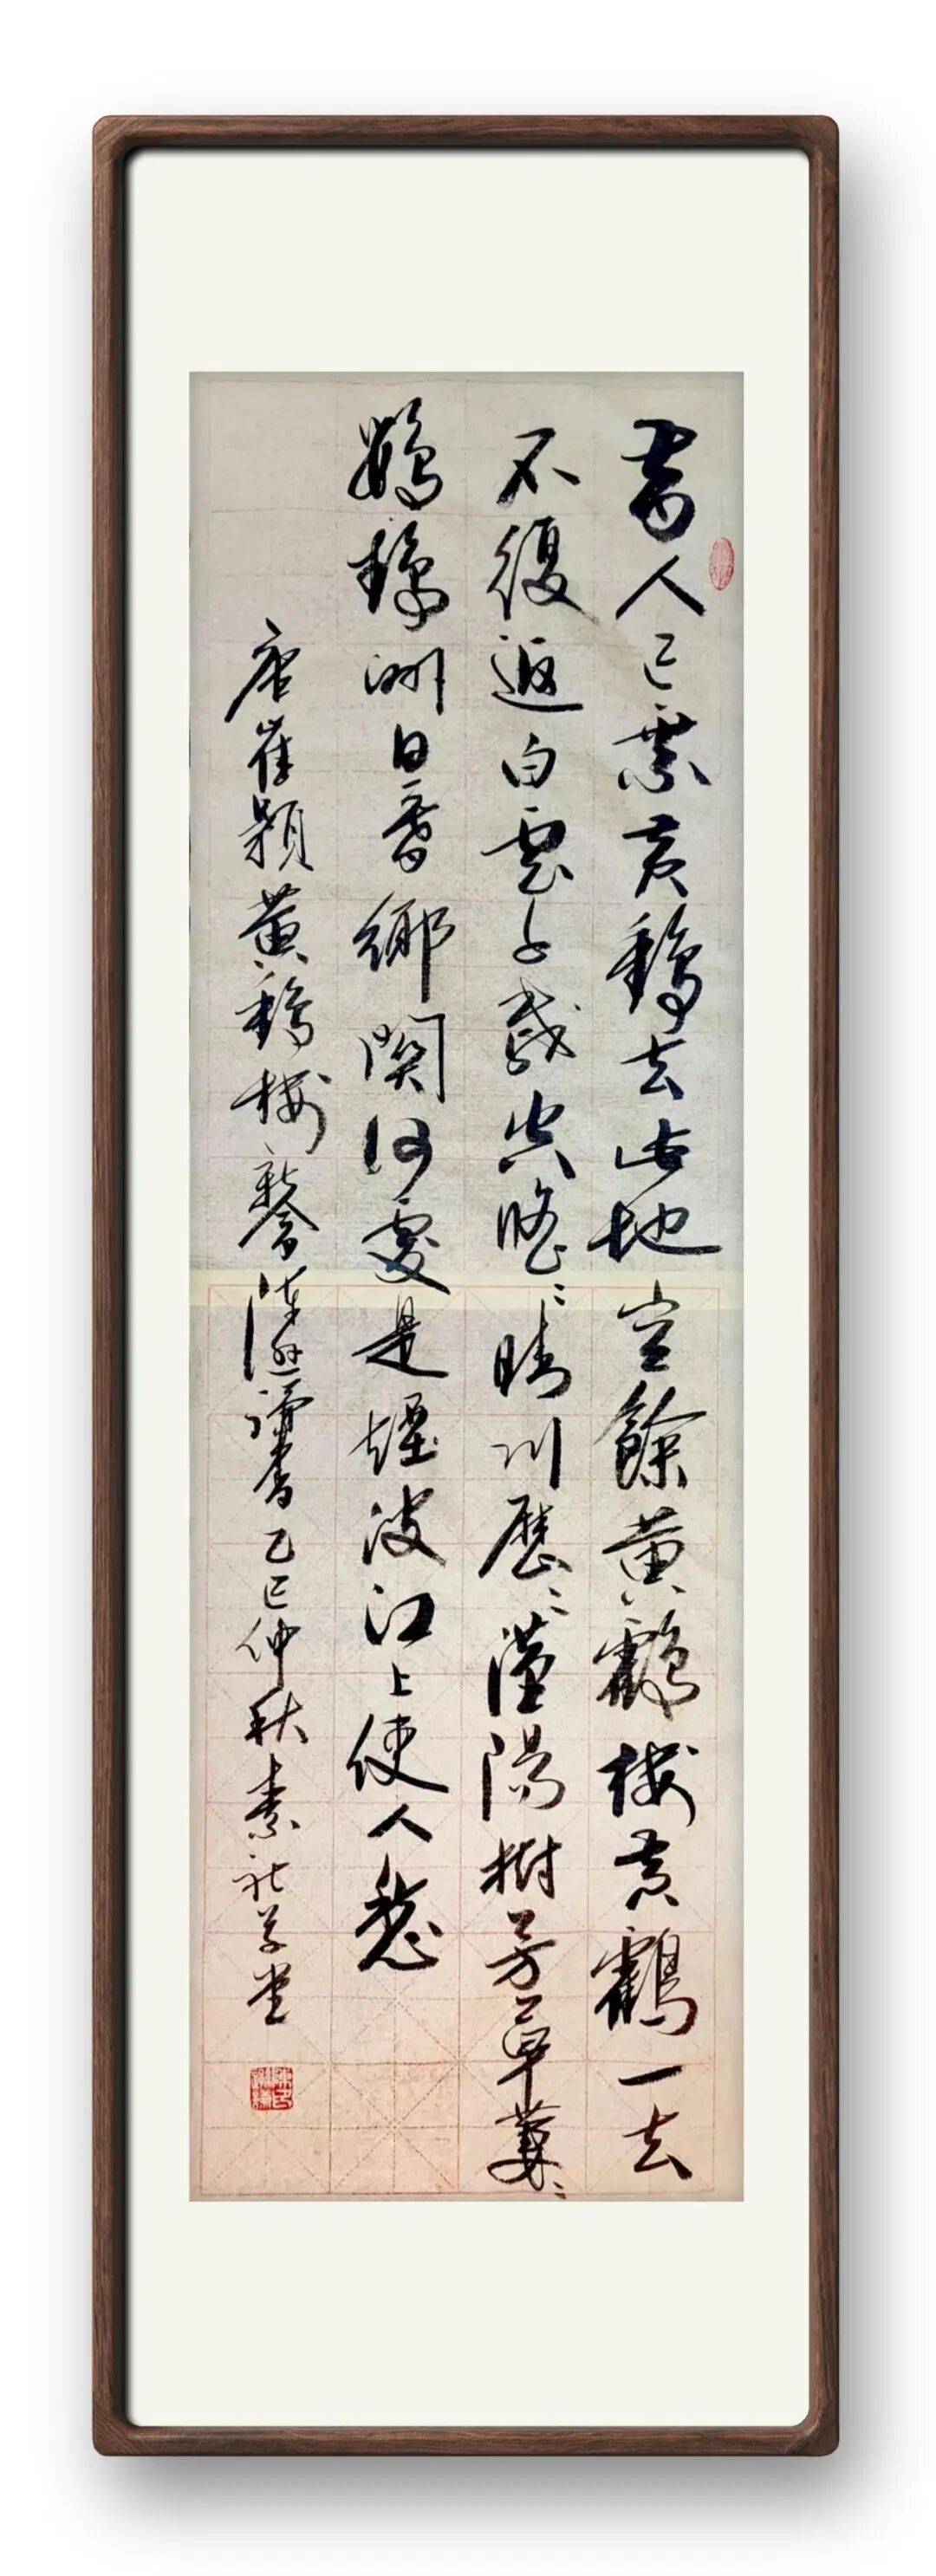 昔人已乘黄鶴去此地空餘黄鶴樓黄鶴一去
不復返白雲千載空悠〻晴川歷〻漢陽樹芳草萋〻
鸚鵡洲日暮鄉關何處是煙波江上使人愁
唐崔顥黄鶴樓 書乙巳仲秋素社草堂